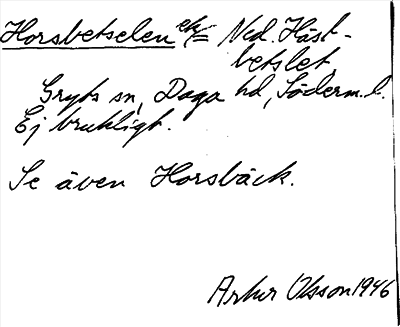 Horsbetselen el. = Ned. Häst-
betslet
Gryts sn, Daga hd, Söderm. l.
Ej brukligt.
Se även Horsbäck.
Arthur Olsson 1946